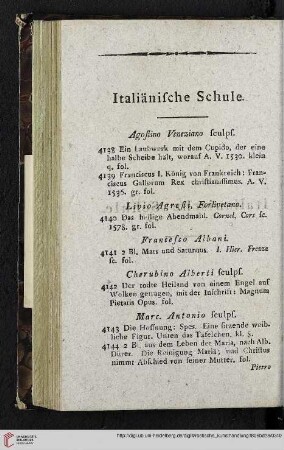 Italiänische Schule.
Agostino Veneziano sculps.
4138 Ein Laubwerk mit dem Cupido, der eine
halbe Scheibe hält, worauf A. V. 1530. klein
q. fol.
4139 Franciscus I. König von Frankreich: Fran-
ciscus Gallorum Rex christianissimus. A. V.
1536. gr. fol.
Livio Agresti, Forlivetano.
4140 Das heilige Abendmahl. Cornel. Cort sc.
1578. gr. fol.
Francesco Albani.
4141 2 Bl. Mars und Saturnus. I. Hier. Frezza
sc. fol.
Cherubino Alberti sculps.
4142 Der todte Heiland von einem Engel auf
Wolken getragen, mit der Inschrift: Magnum
Pietatis Opus. fol.
Marc. Antonio sculps.
4143 Die Hoffnung: Spes. Eine sitzende weib-
liche Figur. Unten das Täfelchen. kl. 8.
4144 2 Bl. aus dem Leben der Maria, nach Alb.
Dürer. Die Reinigung Mariä; und Christus
nimmt Abschied von seiner Mutter. fol.
Pietro